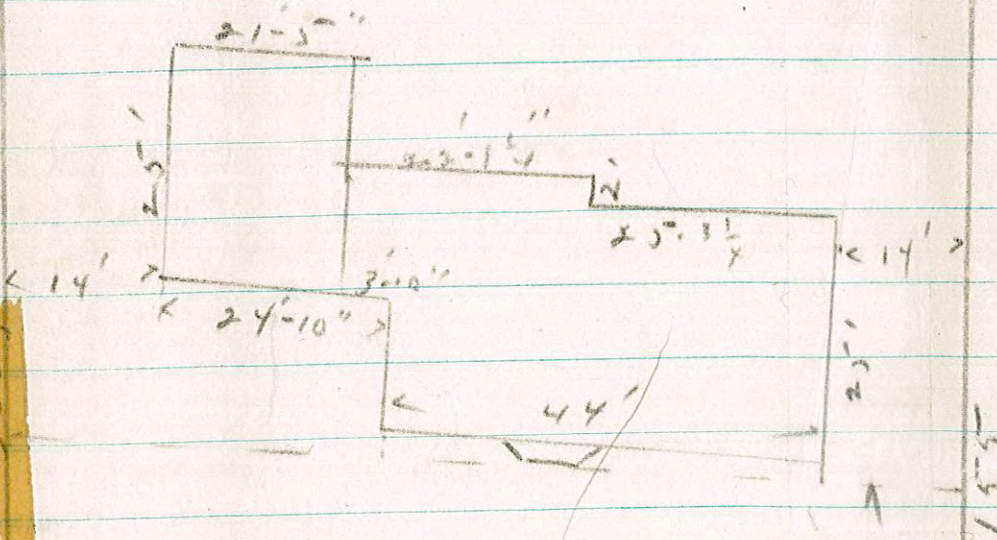 21'-5"
25'
2'
25'-3 1/4
< 14' >
< 14' >
3'-10"
< 24'-10" >
25'
< 44'
155